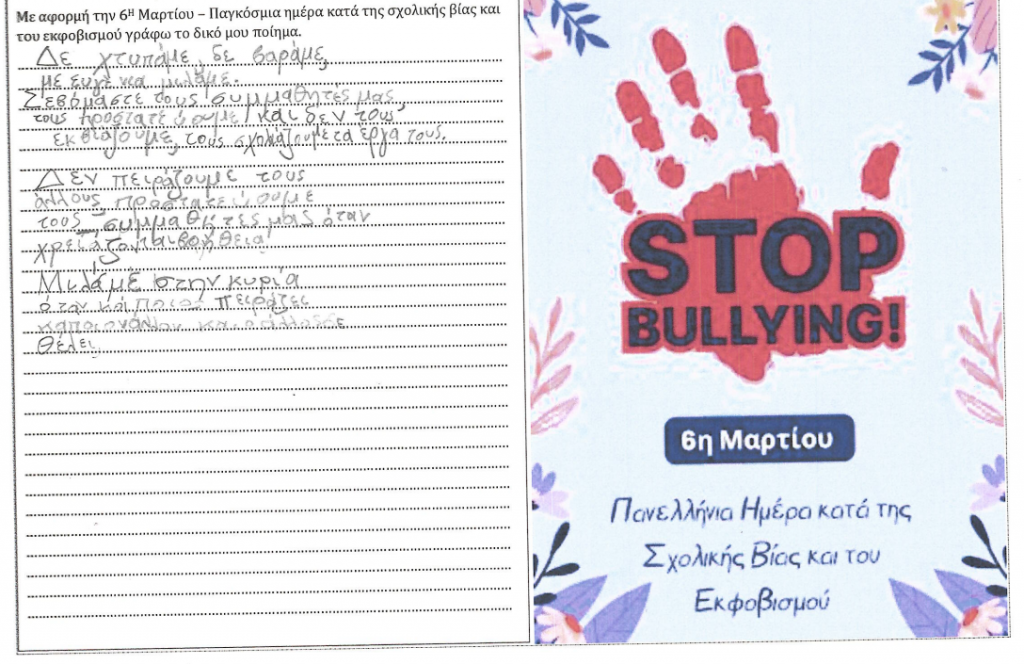 Με αφορμή την 6Η Μαρτίου – Παγκόσμια ημέρα κατά της σχολικής βίας και
του εκφοβισμού γράφω το δικό μου ποίημα.
Δε χτυπάμε, δε βαράμε,
με ευγένεια μιλάμε.
Σεβόμαστε τους συμμαθητές μας,
τους προστατεύουμε και δεν τους
εκβιάζουμε, τους σχολιάζουμε τα έργα τους.
Δεν πειράζουμε τους
άλλους προστατεύουμε
τους συμμαθητές μας όταν
χρειάζονται βοήθεια
Μιλάμε στην κυρία
όταν κάποιος πειράζει
κάποιον άλλον και ο άλλος δε
θέλει
STOP
BULLYING!
6η Μαρτίου
Πανελλήνια Ημέρα κατά της
Σχολικής Βίας και του
Εκφοβισμού